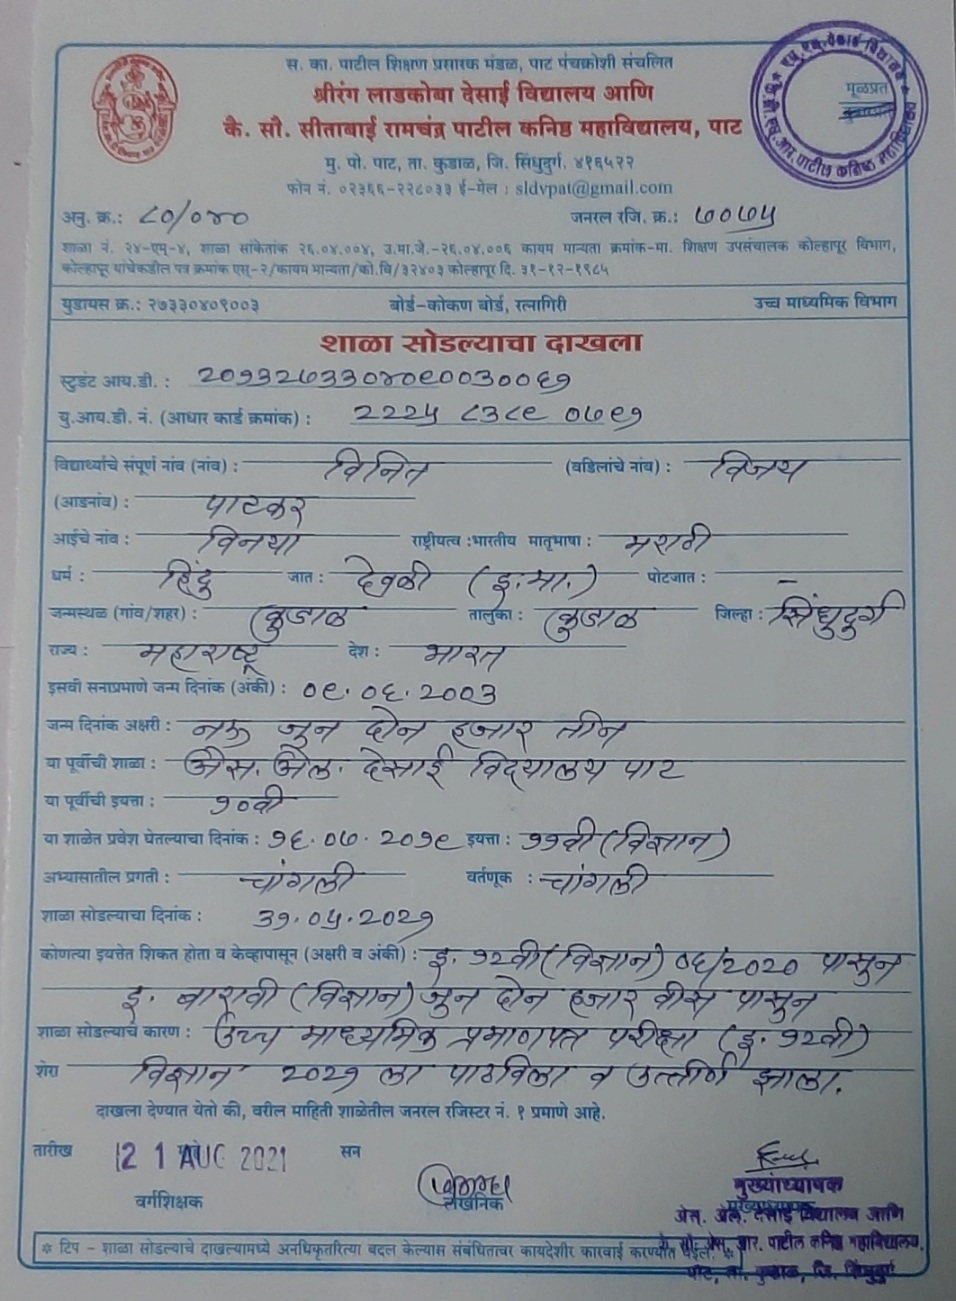 स. का. पाटील शिक्षण प्रसारक मंडळ, पाट पंचक्रोशी संचलित
श्रीरंग लाडकोबा देसाई विद्यालय आणि
कै. सौ. सीताबाई रामचंद्र पाटील कनिष्ठ महाविद्यालय, पाट
मूळप्रत
मु. पो. पाट, ता. कुडाळ, जि. सिंधुदुर्ग. ४१६५२२
फोन नं. ०२३६६-२२८०३३ ई-मेल : sldvpat@gmail.com
अनु. क्र.: ८०/०४० जनरल रजि. क्र.: ७०७५
शाळा नं. २४-एम्-४, शाळा सांकेतांक २६.०४.००४, उ.मा.जे.-२६.०४.००६ कायम मान्यता क्रमांक-मा. शिक्षण उपसंचालक कोल्हापूर विभाग,
कोल्हापूर यांचेकडील पत्र क्रमांक एस्-२/कायम मान्यता/को.वि/३२४०३ कोल्हापूर दि. ३१-१२-१९८५
युडायस क्र.: २७३३०४०९००३ बोर्ड-कोकण बोर्ड, रत्नागिरी उच्च माध्यमिक विभाग
शाळा सोडल्याचा दाखला
स्टुडंट आय.डी. : २०१३२७३३०४०९००३००६१
यु.आय.डी. नं. (आधार कार्ड क्रमांक) : २२२५ ८३८९ ०७९१
विद्यार्थ्याचे संपूर्ण नांव (नांव) : विनित (वडिलांचे नांव) : विजय
(आडनांव) : पाटकर
आईचे नांव : विनया राष्ट्रीयत्व :भारतीय मातृभाषा : मराठी
धर्म : हिंदु जात : देवळी (इ.मा.) पोटजात : –
जन्मस्थळ (गांव/शहर) : कुडाळ तालुका : कुडाळ जिल्हा : सिंधुदुर्ग
राज्य : महाराष्ट्र देश : भारत
इसवी सनाप्रमाणे जन्म दिनांक (अंकी) : ०९.०६.२००३
जन्म दिनांक अक्षरी : नऊ जुन दोन हजार तीन
या पूर्वीची शाळा : ॲस. ॲल. देसाई विद्यालय पाट
या पूर्वीची इयत्ता : १०वी
या शाळेत प्रवेश घेतल्याचा दिनांक : १६.०७.२०१९ इयत्ता : ११वी (विज्ञान)
अभ्यासातील प्रगती : चांगली वर्तणूक : चांगली
शाळा सोडल्याचा दिनांक : ३१.०५.२०२१
कोणत्या इयत्तेत शिकत होता व केव्हापासून (अक्षरी व अंकी) : इ. १२वी (विज्ञान) ०६/२०२० पासुन
इ. बारावी (विज्ञान) जुन दोन हजार वीस पासुन
शाळा सोडल्याचे कारण : उच्च माध्यमिक प्रमाणपत्र परीक्षा (इ. १२वी)
शेरा विज्ञान २०२१ ला पाठविला व उत्तीर्ण झाला.
दाखला देण्यात येतो की, वरील माहिती शाळेतील जनरल रजिस्टर नं. १ प्रमाणे आहे.
तारीख 21 AUG 2021 सन
वर्गशिक्षक लेखनिक मुख्याध्यापक
ॲस. ॲल. देसाई विद्यालय आणि
आर. पाटील कनिष्ठ महाविद्यालय,
पाट, ता. कुडाळ, जि. सिंधुदुर्ग
* टिप - शाळा सोडल्याचे दाखल्यामध्ये अनधिकृतरित्या बदल केल्यास संबंधितावर कायदेशीर कारवाई करण्यात येईल. *